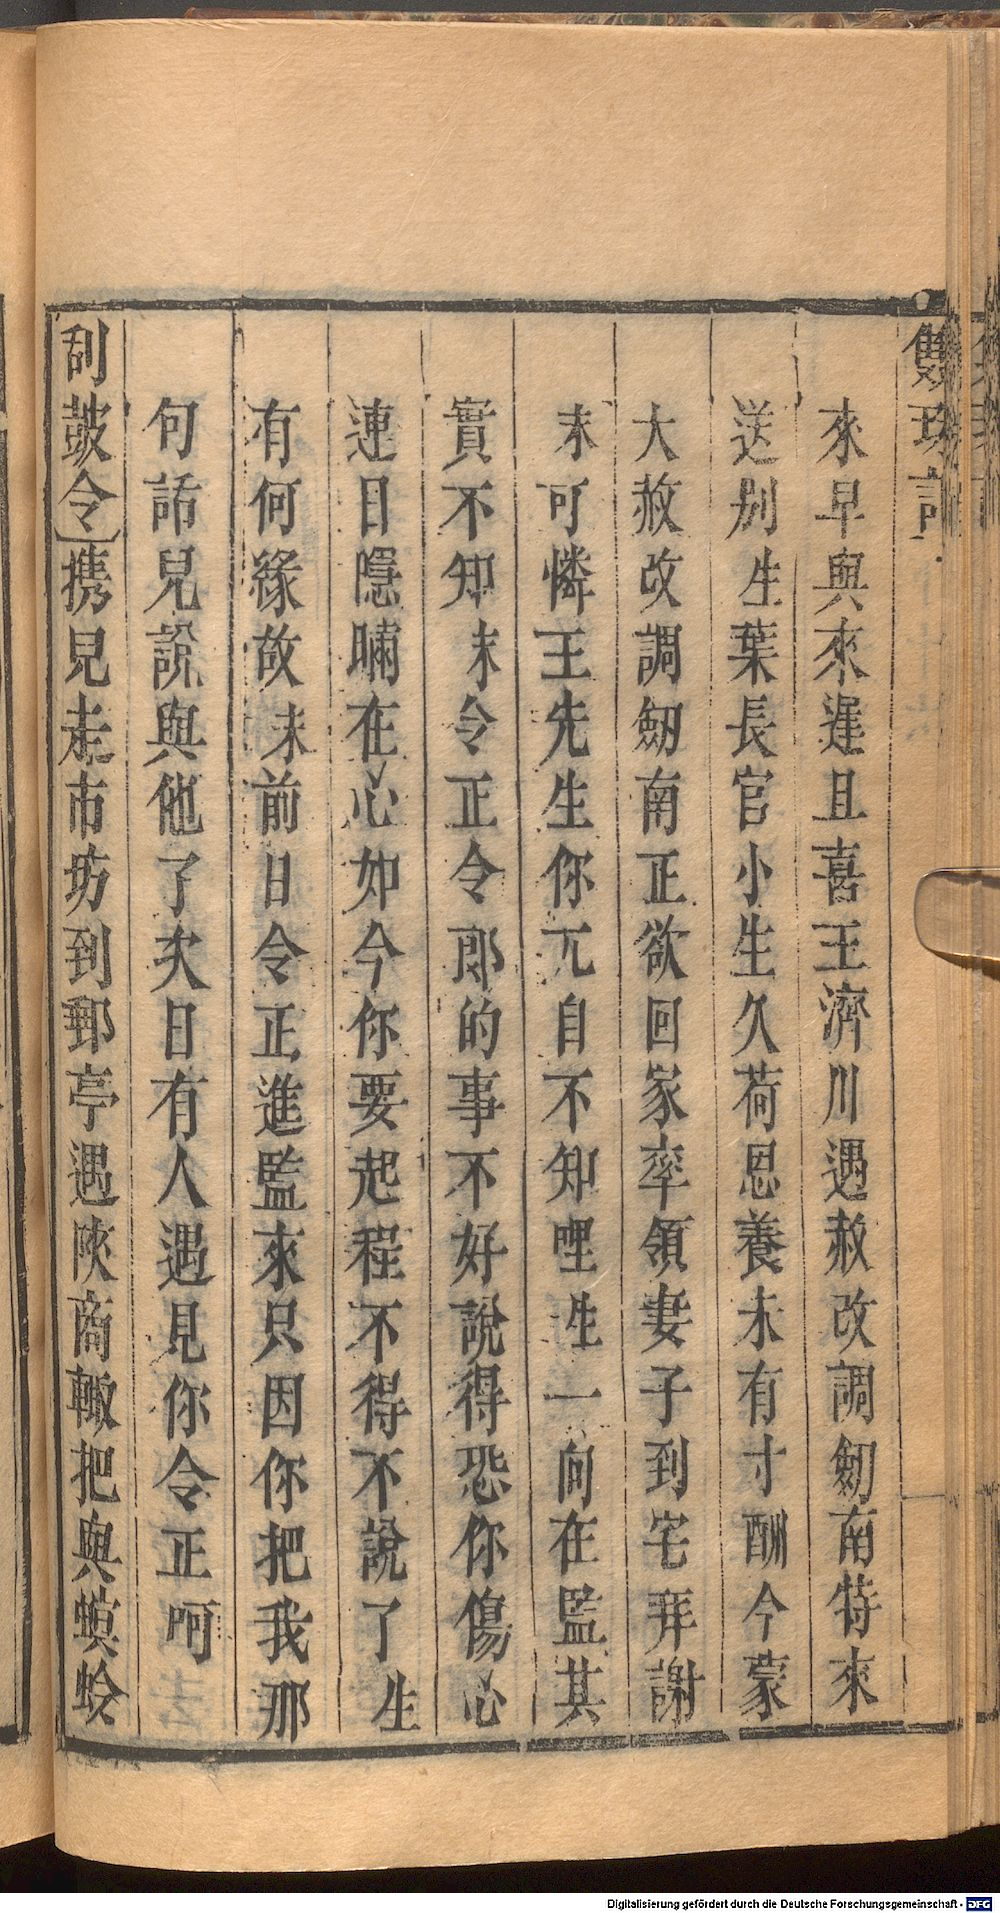 雙珠記
來早與來遲且喜王濟川遇赦改調劒南特來
送別生葉長官小生久荷恩養未有寸酬今蒙
大赦改調劒南正欲回家率領妻子到宅拜謝
末可憐王先生你兀自不知哩生一向在監其
實不知末令正令郎的事不好說得恐你傷心
連日隱瞞在心如今你要起程不得不說了生
有何緣故末前日令正進監來只因你把我那
句話兒說與他了次日有人遇見你令正呵
刮皷令携兒走市坊到郵亭遇陝商輙把與螟蛉
Digitalisierung gefördert durch die Deutsche Forschungsgemeinschaft - DFG